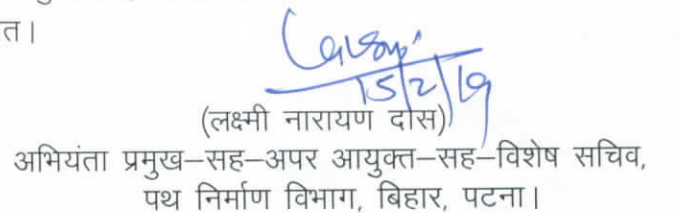 त।
15/2/19
(लक्ष्मी नारायण दास)
अभियंता प्रमुख–सह–अपर आयुक्त–सह–विशेष सचिव,
पथ निर्माण विभाग, बिहार, पटना।